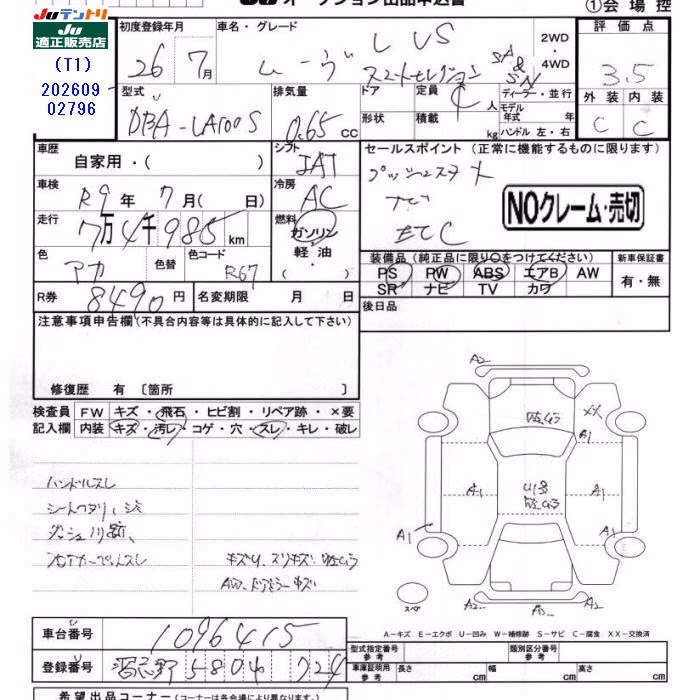 JUテントリ
JU
適正販売店
(T1)
202609
02796
オークション出品申込書
①会場控
初度登録年月 車名・グレード 評価点
26 7月 ムーヴ L VS スマートセレクション SA & SN 2WD・4WD 3.5
型式 排気量 ドア 定員 人 ディーラー・並行 外装 内装
DBA-LA100S 0.65 cc 形状 積載 kg モデル年式 年 ハンドル 左・右 C C
車歴 自家用・( ) シフト IAT
セールスポイント(正常に機能するものに限ります)
プッシュスタート
ナビ
ETC
車検 R9年7月( 日) 冷房 AC
NOクレーム・売切
走行 7万4千985km 燃料 ガソリン 軽油・( )
色 アカ 色替 色コード R67
装備品(純正品に限り○をつけてください) 新車保証書
PS PW ABS エアB AW 有・無
SR ナビ TV カワ
R券 8490円 名変期限 月 日
後日品
注意事項申告欄(不具合内容等は具体的に記入して下さい)
修復歴 有〔箇所 〕
検査員 FW キズ・飛石・ヒビ割・リペア跡・×要
記入欄 内装 キズ・汚レ・コゲ・穴・スレ・キレ・破レ
ハンドルスレ
A2
XX
A1
A1
A1
A1
A1
A2
A2
スペア
A-キズ E-エクボ U-凹み W-補修跡 S-サビ C-腐食 XX-交換済
車台番号 1096415
登録番号 習志野 580 724
型式指定番号 参考 類別区分番号 参考
車庫証明用 参考 長さ cm 幅 cm 高さ cm
希望出品コーナー(コーナーは各会場により異なります。)